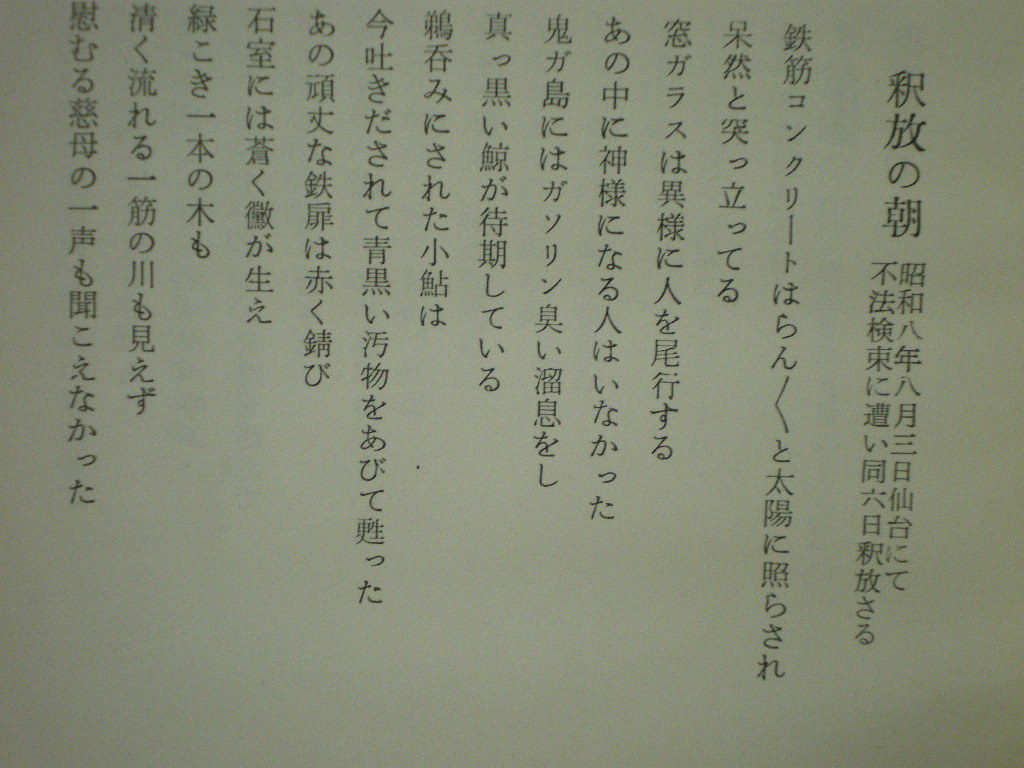 釈放の朝
昭和八年八月三日仙台にて
不法検束に遭い同六日釈放さる
鉄筋コンクリートはらん〳〵と太陽に照らされ
呆然と突っ立ってる
窓ガラスは異様に人を尾行する
あの中に神様になる人はいなかった
鬼ガ島にはガソリン臭い溜息をし
真っ黒い鯨が待期している
鵜呑みにされた小鮎は
今吐きだされて青黒い汚物をあびて甦った
あの頑丈な鉄扉は赤く錆び
石室には蒼く黴が生え
緑こき一本の木も
清く流れる一筋の川も見えず
慰むる慈母の一声も聞こえなかった